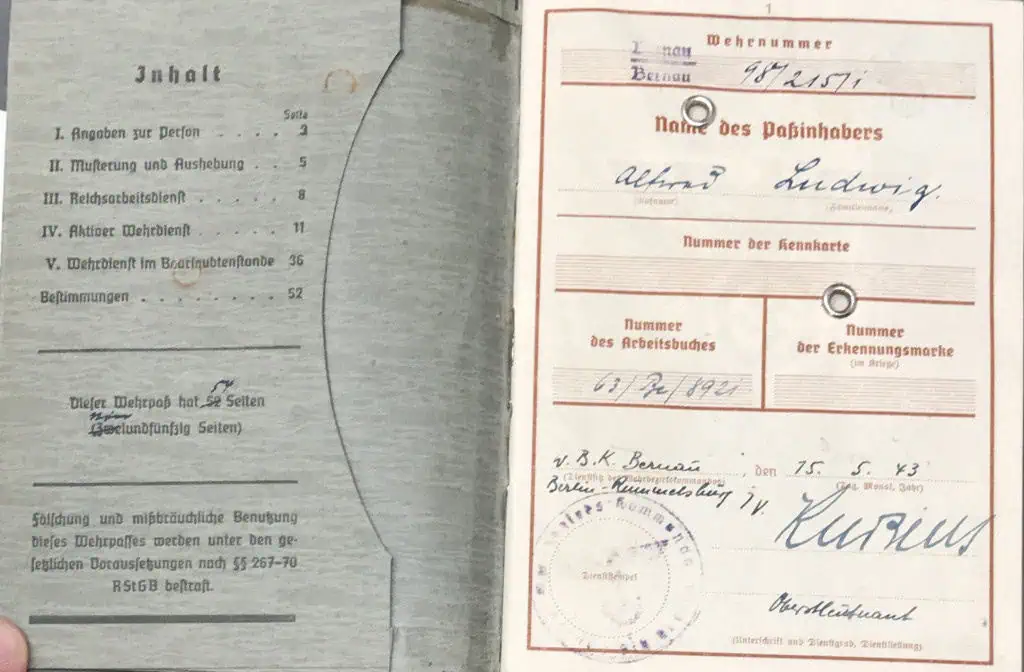 Inhalt
Seite
I. Angaben zur Person . . . . 3
II. Musterung und Aushebung . . 5
III. Reichsarbeitsdienst . . . . . 8
IV. Aktiver Wehrdienst . . . . . 11
V. Wehrdienst im Beurlaubtenstande 36
Bestimmungen . . . . . . . . 52
54
Dieser Wehrpaß hat 52 Seiten
(Zweiundfünfzig Seiten)
Fälschung und mißbräuchliche Benutzung
dieses Wehrpasses werden unter den ge-
setzlichen Voraussetzungen nach §§ 267-70
RStGB bestraft.
1
Wehrnummer
Bernau 98/215/1
Name des Paßinhabers
Alfred Ludwig.
(Vorname) (Familienname)
Nummer der Kennkarte
Nummer
des Arbeitsbuches
63/ /8921
Nummer
der Erkennungsmarke
(im Kriege)
W.B.K. Bernau, den 15. 5. 43
(Dienstsitz des Wehrbezirkskommandos) (Tag, Monat, Jahr)
Berlin-Rummelsburg IV.
Kommando
Dienststempel
Oberstleutnant
(Unterschrift und Dienstgrad, Dienststellung)